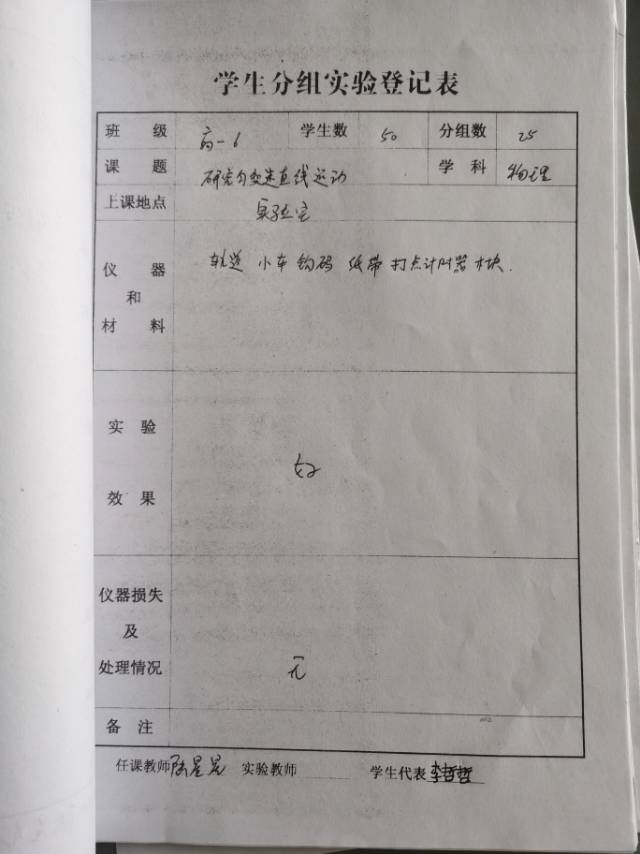 学生分组实验登记表
班级 高一6 学生数 50 分组数 25
课题 研究匀变速直线运动 学科 物理
上课地点 实验室
仪器和材料 轨道 小车 钩码 纸带 打点计时器 木块.
实验效果 好
仪器损失及处理情况 无
备注
任课教师 陈星星 实验教师 学生代表 李哲